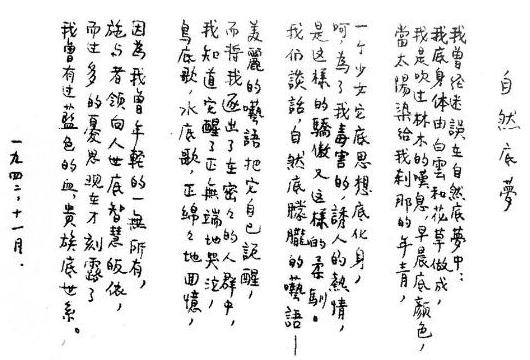 自然底夢
我曾经迷誤在自然底夢中;
我底身体由白雲和花草做成,
我是吹过林木的嘆息,早晨底顏色,
當太陽染給我刹那的年青,
一个少女它底思想底化身,
呵,為了我毒害的,誘人的熱情,
是這樣的驕傲又這樣的柔馴。
我们談話,自然底朦朧的囈語—
美麗的囈語把它自己說醒,
而将我逐出了在密々的人群中,
我知道它醒了正無端地哭泣,
鳥底歌,水底歌,正綿々地回憶,
因為我曾年輕的一無所有,
施与者領向人世底智慧皈依,
而过多的憂思現在才刻露了
我曾有过藍色的血,貴族底世系。
一九四二,十一月.